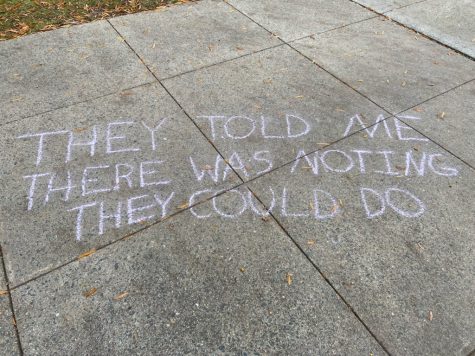 THEY TOLD ME
THERE WAS NOTING
THEY COULD DO